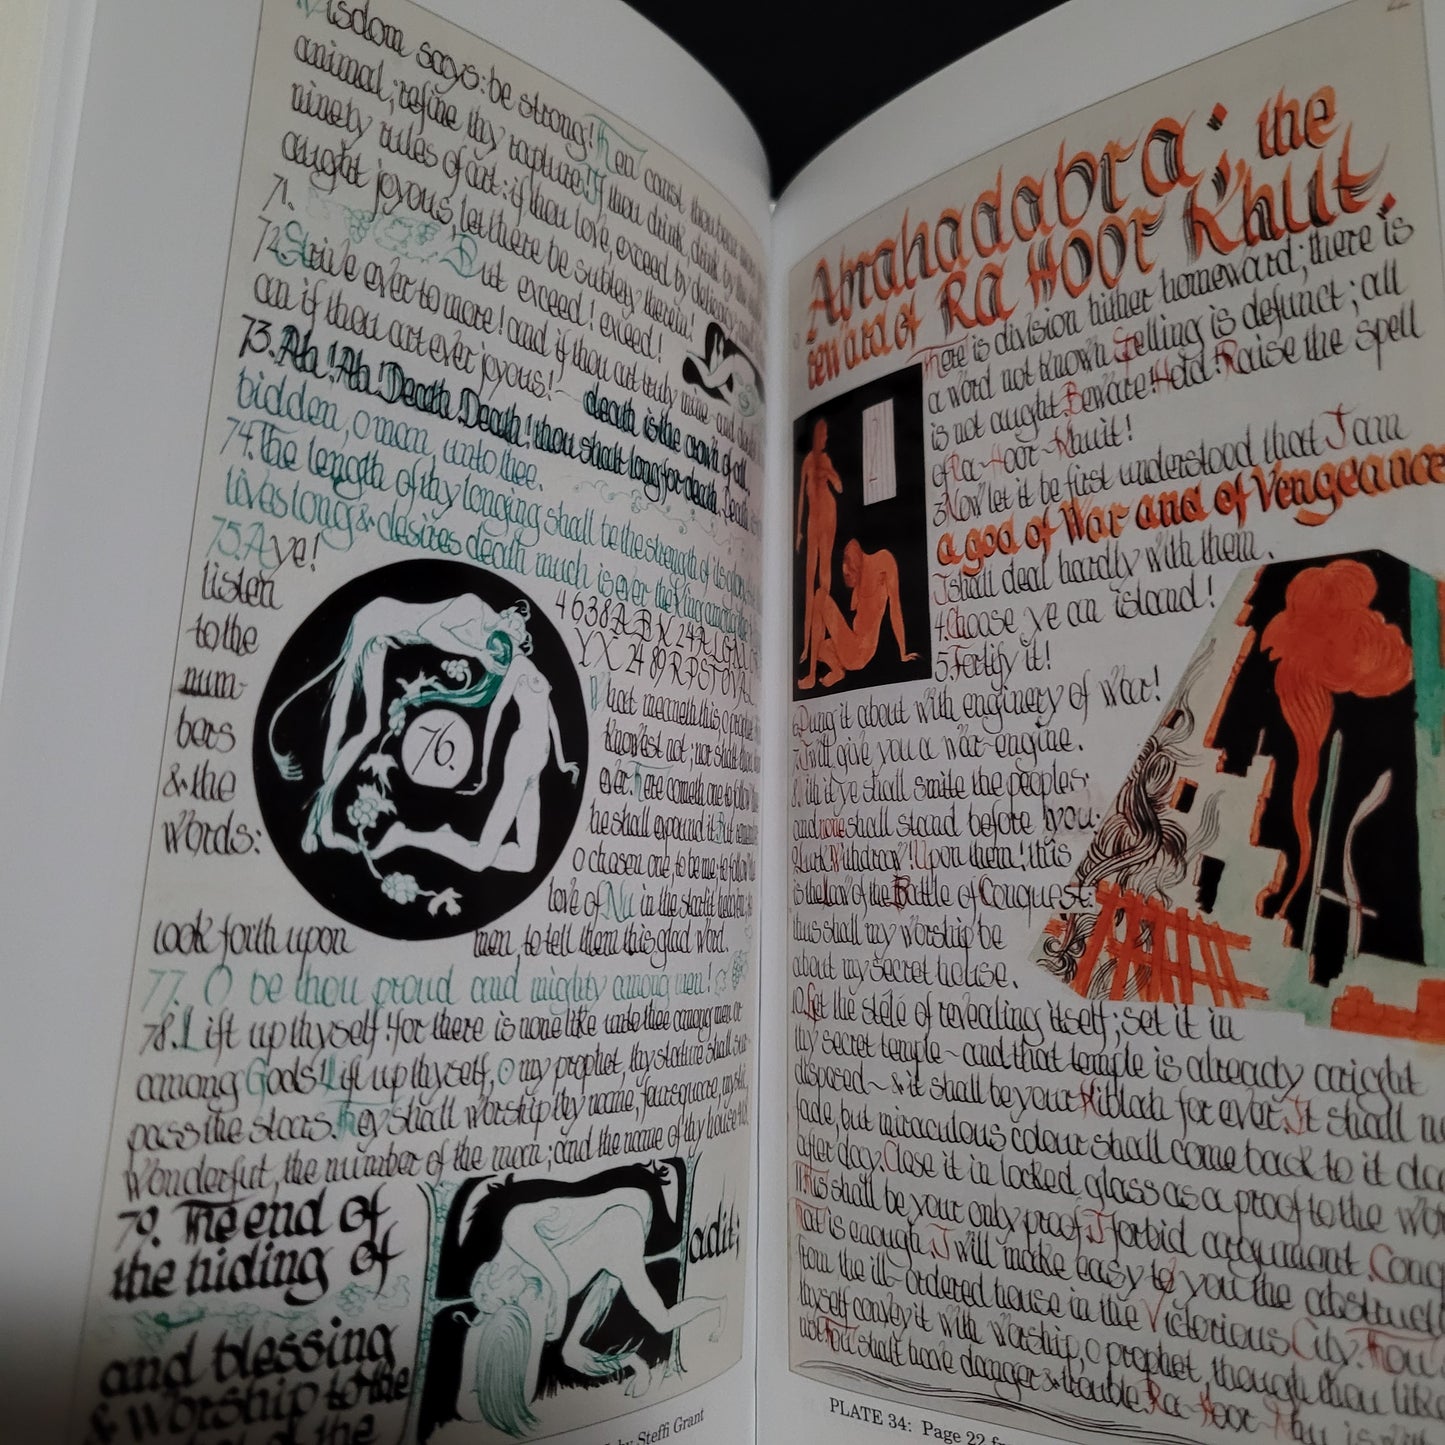 Wisdom says: be strong! Then canst thou bear more
animal; refine thy rapture! If thou drink, drink by the
ninety rules of art: if thou love, exceed by delicacy and
aught joyous, let there be subtlety therein!
71. But exceed! exceed!
72. Strive ever to more! and if thou art truly mine ~ and
an if thou art ever joyous! ~ death is the crown of all.
73. Ah! Ah! Death! Death! thou shalt long for death. Death is
bidden, o man, unto thee.
74. The length of thy longing shall be the strength of its glory. He
lives long & desires death much is ever the King among the
75. Aye!
listen
to the
num-
bers
& the
words:
76.
4 6 3 8 A B K 24 A L G M
Y X 24 89 R P S T O V A L
What meaneth this, o prophet
knowest not; nor shalt thou
ever. There cometh one to follow
he shall expound it. But
o chosen one, to be me; to follow
love of Nu in the starlit heaven; to
look forth upon men, to tell them this glad word.
77. O be thou proud and mighty among men!
78. Lift up thyself! for there is none like unto thee among men or
among Gods! Lift up thyself, o my prophet, thy stature shall sur-
pass the stars. They shall worship thy name, foursquare, mystic,
wonderful, the number of the man; and the name of thy house 418.
79. The end of
the hiding of
Hadit;
and blessing
& worship to the
of the
by Steffi Grant
22
Abrahadabra; the
reward of Ra Hoor Khut.
There is division hither homeward; there is
a word not known. Spelling is defunct; all
is not aught. Beware! Hold! Raise the spell
of Ra-Hoor-Khuit!
3. Now let it be first understood that I am
a god of War and of Vengeance
I shall deal hardly with them.
4. Choose ye an island!
5. Fortify it!
6. Dung it about with enginery of war!
7. I will give you a war-engine.
8. With it ye shall smite the peoples;
and none shall stand before you.
9. Lurk! Withdraw! Upon them! this
is the Law of the Battle of Conquest:
thus shall my worship be
about my secret house.
10. Get the stélé of revealing itself; set it in
thy secret temple ~ and that temple is already aright
disposed ~ & it shall be your Kiblah for ever. It shall
fade, but miraculous colour shall come back to it
after day. Close it in locked glass as a proof to the
11. This shall be your only proof. I forbid argument.
That is enough. I will make easy to you the
from the ill-ordered house in the Victorious City. Thou
thyself convey it with worship, o prophet, though thou
not. Thou shalt have danger & trouble. Ra-Hoor-
PLATE 34: Page 22